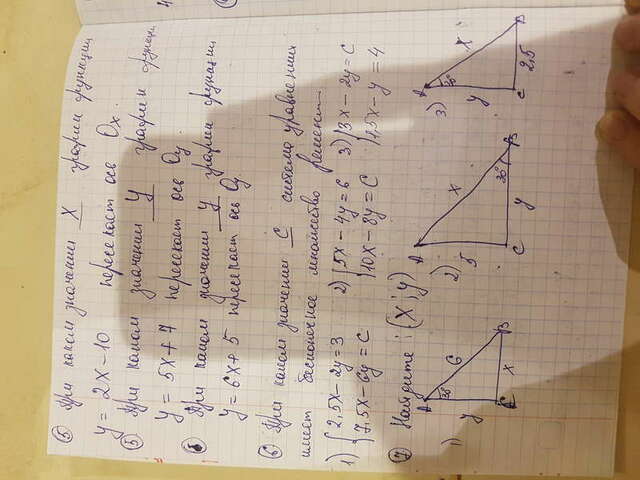 ⑤ При каком значении X график функции
y = 2x-10 пересекает ось Ox.
⑤ При каком значении y график функции
y = 5x+7 пересекает ось Oy.
При каком значении y график функции
y = 6x+5 пересекает ось Oy.
⑥ При каком значении C система уравнений
имеет бесконечное множество решений
1) {2,5x-2y=3 2) {5x-4y=6 3) {3x-2y=C
7,5x-6y=C 10x-8y=C 1,5x-y=4
⑦ Найдите: (x; y)
1) A 30° 6 y C x B
2) A 5 x 30° C y B
3) A 30° y x C 2,5 B